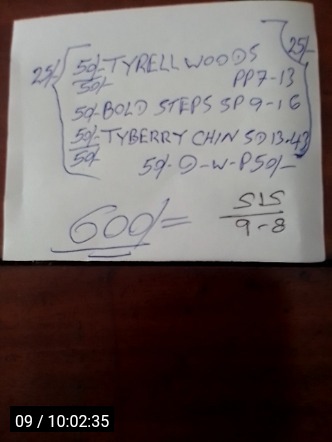 25/-
25/- 50/- TYRELL WOODS
50/- PP7-13
50/- BOLD STEPS SP 9-16
50/- TYBERRY CHIN SD 13.43
50/- 50/- D-W-P 50/-
600/= SIS
9-8
09 / 10:02:35